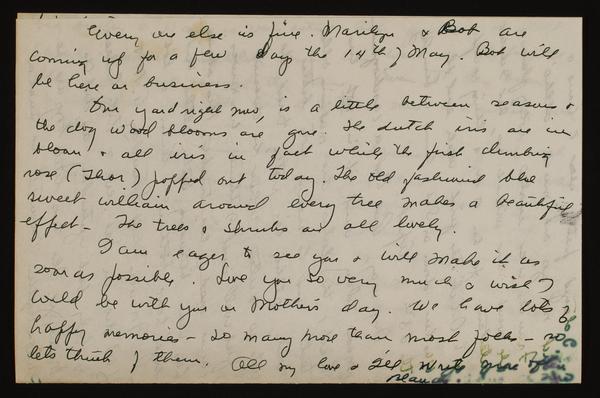 Every one else is fine. Marilyn & Bob are
coming up for a few days the 14th of May. Bob will
be here on business.
Our yard right now, is a little between seasons &
the dog wood blooms are gone. The dutch iris are in
bloom & all iris in fact while the first climbing
rose (Thor) popped out today. The old fashioned blue
sweet william around every tree makes a beautiful
effect - The trees & shrubs are all lovely.
I am eager to see you & will make it as
soon as possible. Love you so very much & wish I
could be with you on Mother's day. We have lots of
happy memories - so many more than most folks - so
lets think of them. All my love & I'll write more